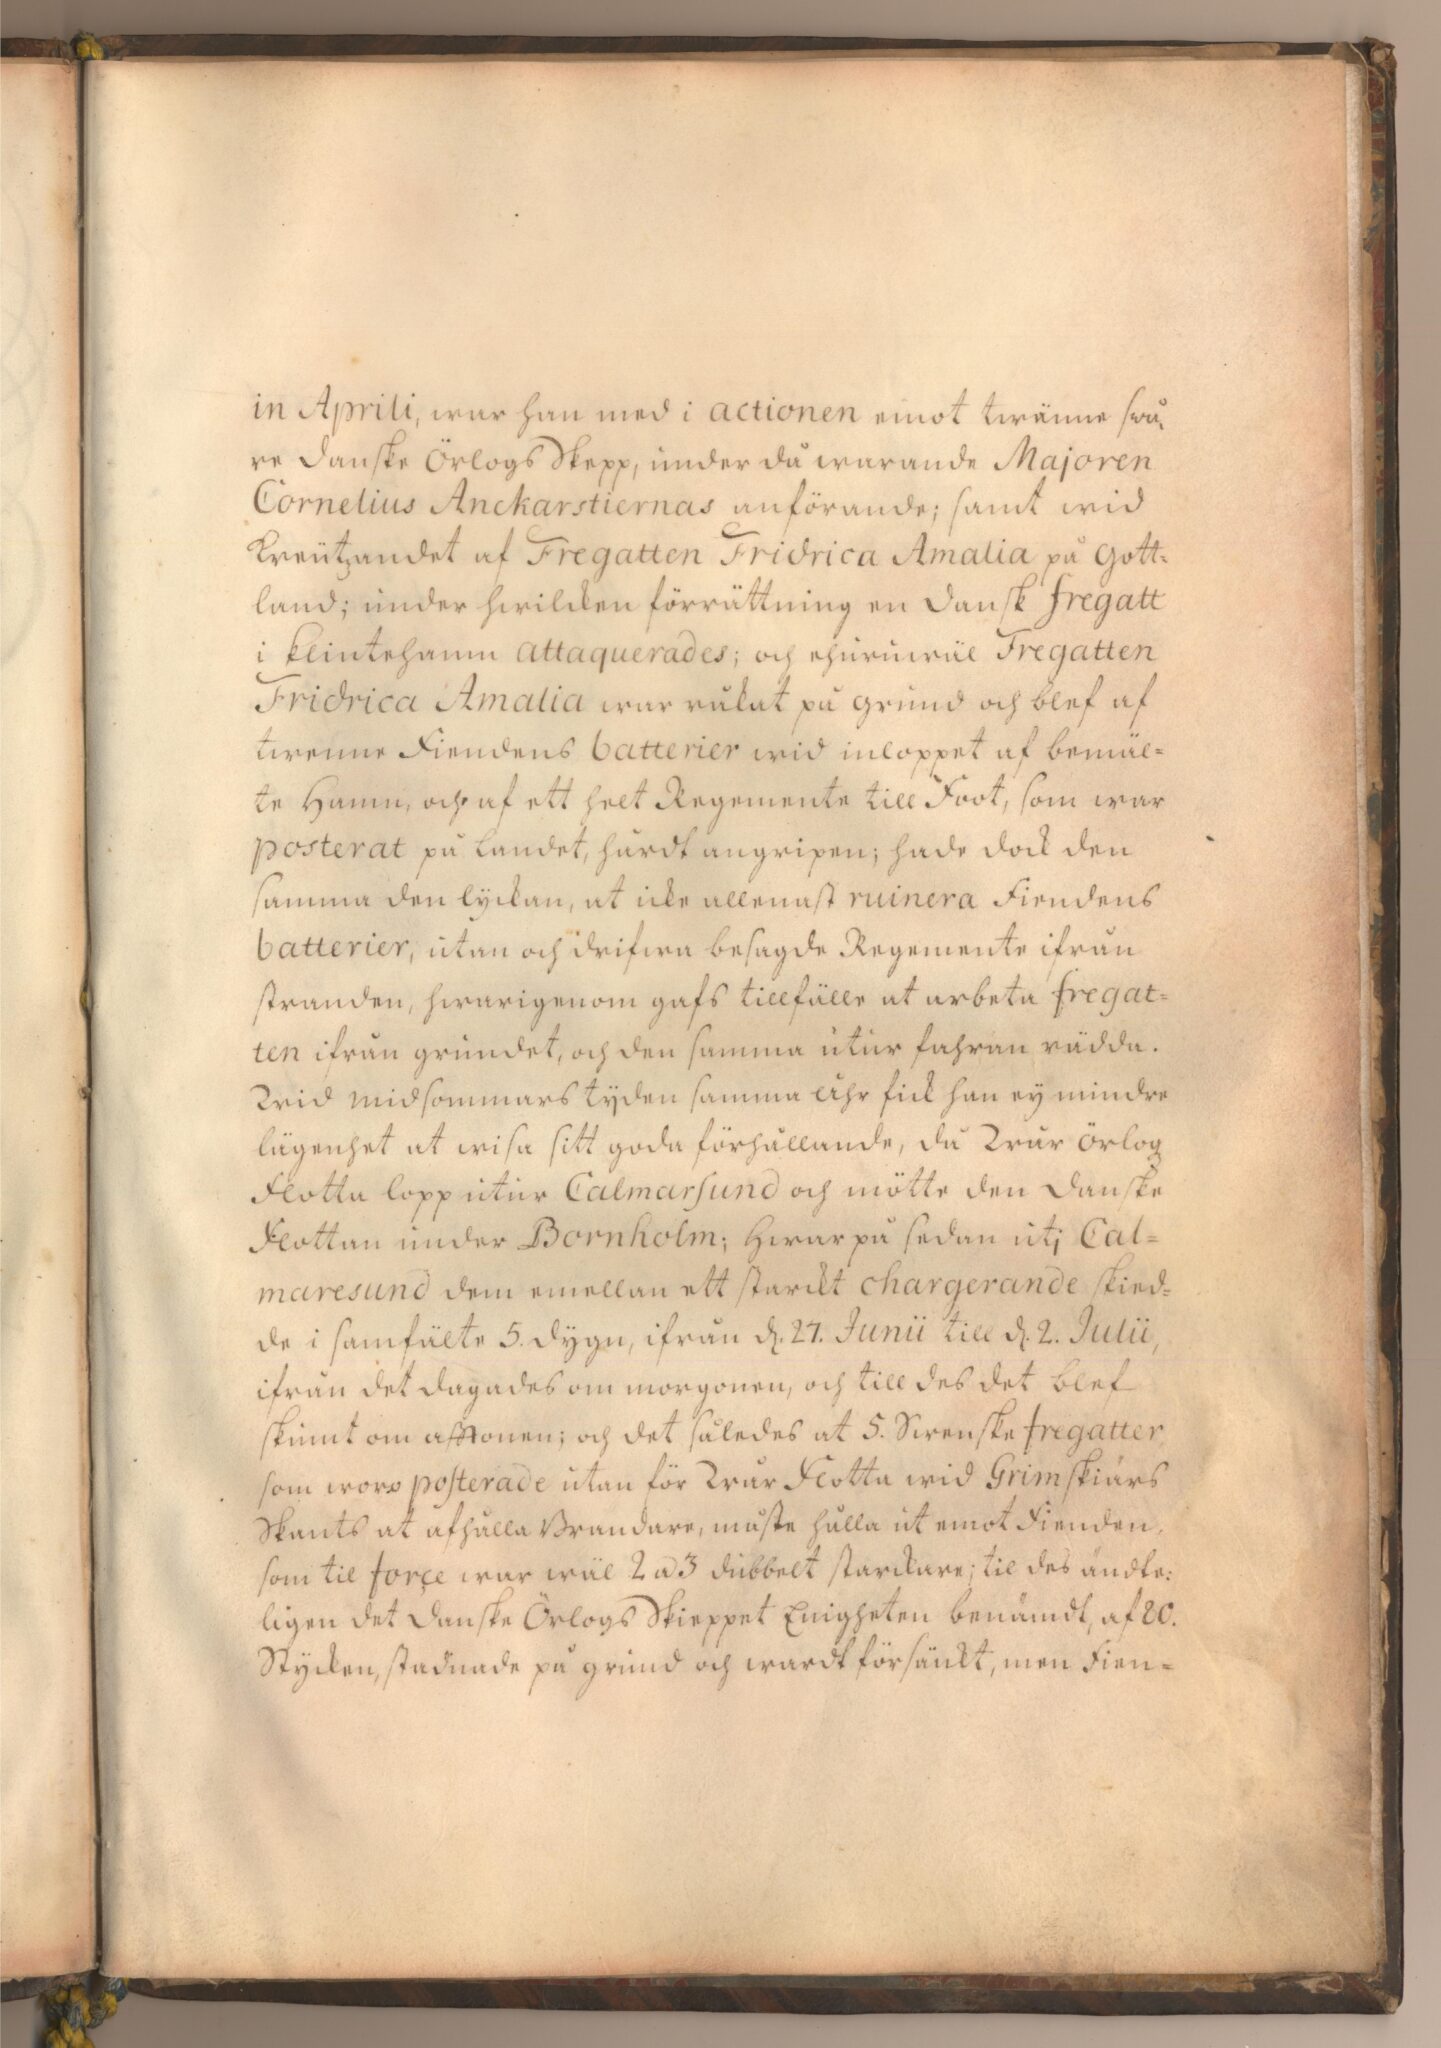 in Aprili, war han med i actionen emot twänne swå,
re Danske Örlogs Skepp, under då warande Majoren
Cornelius Anckarstiernas anförande; samt wid
Kreützandet af Fregatten Fridrica Amalia på Gott=
land; under hwilcken förrättning en Dansk fregatt
i Klintehamn attaquerades; och ehuruwäl Fregatten
Fridrica Amalia war råkat på grund och blef af
twenne Fiendens batterier wid inloppet af bemäl=
te Hamn, och af ett helt Regemente till Foot, som war
posterat på Landet, hårdt angripen; hade dock den
samma den lyckan, at icke allenast ruinera Fiendens
batterier, utan och drifwa besagde Regemente ifrån
stranden, hwarigenom gafs tillfälle at arbeta fregat=
ten ifrån grundet, och den samma utur fahran rädda.
Wid Midsommars tyden samma Åhr fick han ey mindre
lägenhet at wisa sitt goda förhållande, då Wår Örlog
Flotta lopp utur Calmarsund och mötte den Danske
Flottan under Bornholm; Hwarpå sedan utj Cal=
maresund dem emellan ett starckt chargerande skied=
de i samfälte 5. dygn, ifrån d. 27. Junii till d. 2. Julii,
ifrån det dagades om morgonen, och till des det blef
skumt om afftonen; och det således at 5. Swenske fregatter,
som woro posterade utan för Wår Flotta wid Grimskiärs
Skants at afhålla Brandare, måste hålla ut emot Fienden,
som til force war wäl 2 a 3 dubbelt starckare; til des ändte:
ligen det Danske Örlogs Skieppet Enigheten benämdt, af 80.
Stycken, stadnade på grund och wardt försänkt, men Fien=